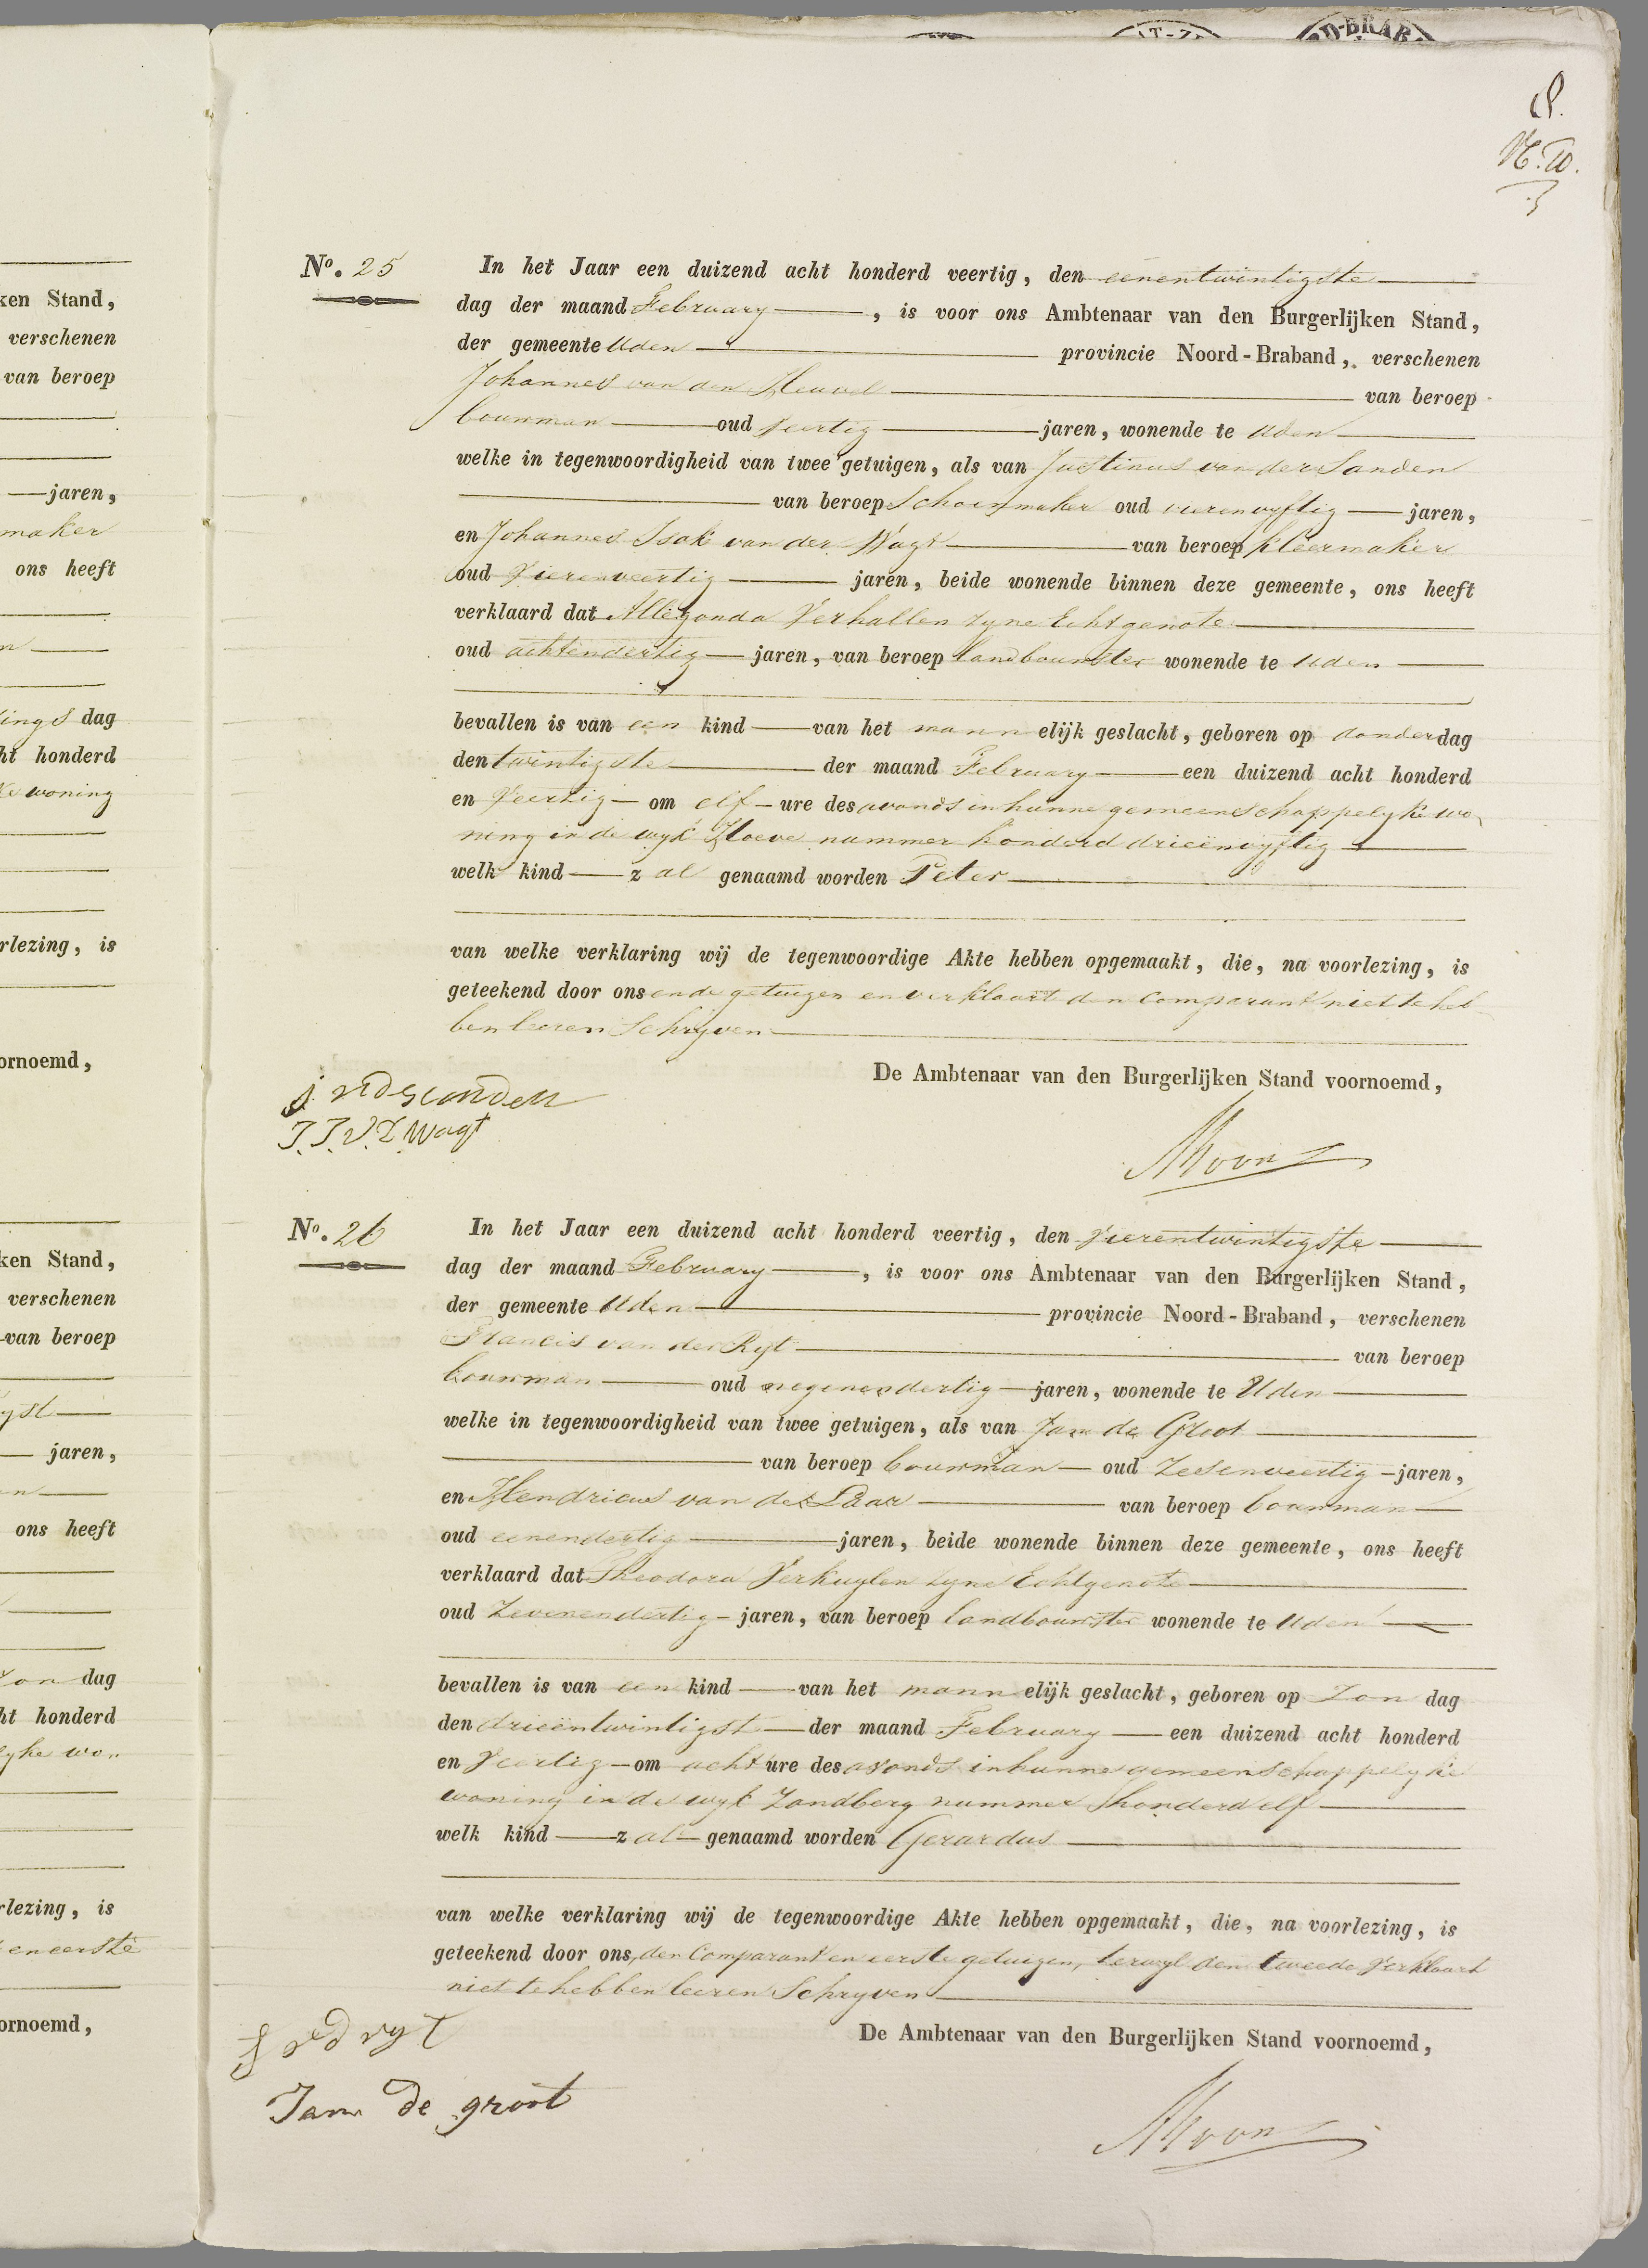 RD-BRAB
N.º 25 In het Jaar een duizend acht honderd veertig, den eenentwintigste
dag der maand February, is voor ons Ambtenaar van den Burgerlijken Stand,
der gemeente Uden provincie Noord-Braband, verschenen
Johannes van den Heuvel van beroep
bouwman oud veertig jaren, wonende te Uden
welke in tegenwoordigheid van twee getuigen, als van Justinus van der Sanden
van beroep Schoenmaker oud vierenvyftig jaren,
en Johannes Isak van der Wagt van beroep kleermaker
oud Vierenveertig jaren, beide wonende binnen deze gemeente, ons heeft
verklaard dat Allegonda Verhallen zyne Echtgenote
oud achtendertig jaren, van beroep landbouwster wonende te Uden
bevallen is van een kind van het mannelijk geslacht, geboren op donderdag
den twintigste der maand February een duizend acht honderd
en Veertig om elf ure des avonds in hunne gemeenschappelyke wo-
ning in de wyk Hoeve nummer honderd drieënvyftig
welk kind zal genaamd worden Peter
van welke verklaring wij de tegenwoordige Akte hebben opgemaakt, die, na voorlezing, is
geteekend door ons en de getuigen en verklaart den Comparant niet te heb-
ben leeren Schryven
De Ambtenaar van den Burgerlijken Stand voornoemd,
j vd sanden
J. J. V. D. Wagt
N.º 26 In het Jaar een duizend acht honderd veertig, den Vierentwintigste
dag der maand February, is voor ons Ambtenaar van den Burgerlijken Stand,
der gemeente Uden provincie Noord-Braband, verschenen
Francis van der Ryt van beroep
bouwman oud negenendertig jaren, wonende te Uden
welke in tegenwoordigheid van twee getuigen, als van Jan de Groot
van beroep bouwman oud Zesenveertig jaren,
en Hendricus van de Laar van beroep bouwman
oud eenendertig jaren, beide wonende binnen deze gemeente, ons heeft
verklaard dat Theodora Verkuylen zyne Echtgenote
oud Zevenendertig jaren, van beroep landbouwster wonende te Uden
bevallen is van een kind van het mannelijk geslacht, geboren op Zondag
den drieëntwintigst der maand February een duizend acht honderd
en Veertig om acht ure des avonds in hunne gemeenschappelyke
woning in de wyk Zandberg nummer honderd elf
welk kind zal genaamd worden Gerardus
van welke verklaring wij de tegenwoordige Akte hebben opgemaakt, die, na voorlezing, is
geteekend door ons, den Comparant en eerste getuigen, terwyl den tweede Verklaart
niet te hebben leeren Schryven
De Ambtenaar van den Burgerlijken Stand voornoemd,
f vd ryt
Jan de groot
ken Stand,
verschenen
van beroep
jaren,
maker
ons heeft
ings dag
ht honderd
woning
rlezing, is
ornoemd,
ken Stand,
verschenen
van beroep
yst
jaren,
ons heeft
Zon dag
ht honderd
lyke wo..
rlezing, is
en eerste
ornoemd,